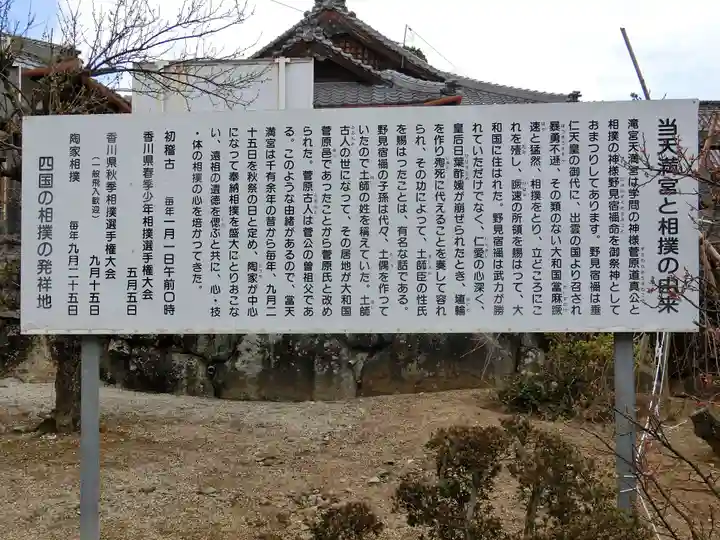 当天満宮と相撲の由来
滝宮天満宮は学問の神様菅原道真公と
相撲の神様野見宿禰命を御祭神として
おまつりしてあります。野見宿禰は垂
仁天皇の御代に、出雲の国より召され
暴勇不逊、その類のない大和国當麻蹶
速と猛然、相撲をとり、立どころにこ
れを殪し、蹶速の所領を賜はって、大
和国に住はれた。野見宿禰は武力が勝
れていただけでなく、仁愛の心深く、
皇后日葉酢媛が崩ぜられたとき、埴輪
を作り殉死に代えることを奏して容れ
られ、その功によつて、土師臣の性氏
を賜はったことは、有名な話である。
野見宿禰の子孫は代々、土偶を作って
いたので土師の姓を稱えていた。土師
古人の世になって、その居地が大和国
菅原邑であつたことから菅原氏と改め
られた。菅原古人は菅公の曽祖父であ
る。このような由緒があるので、當天
満宮は千有余年の昔から毎年、九月二
十五日を秋祭の日と定め、陶家が中心
になつて奉納相撲を盛大にとりおこな
い、遠祖の遺徳を偲ぶと共に、心・技
・体の相撲の心を培がつてきた。
初稽古　毎年一月一日午前〇時
香川県春季少年相撲選手権大会
五月五日
香川県秋季相撲選手権大会
（一般飛入歓迎）　九月十五日
陶家相撲　毎年九月二十五日
四国の相撲の発祥地